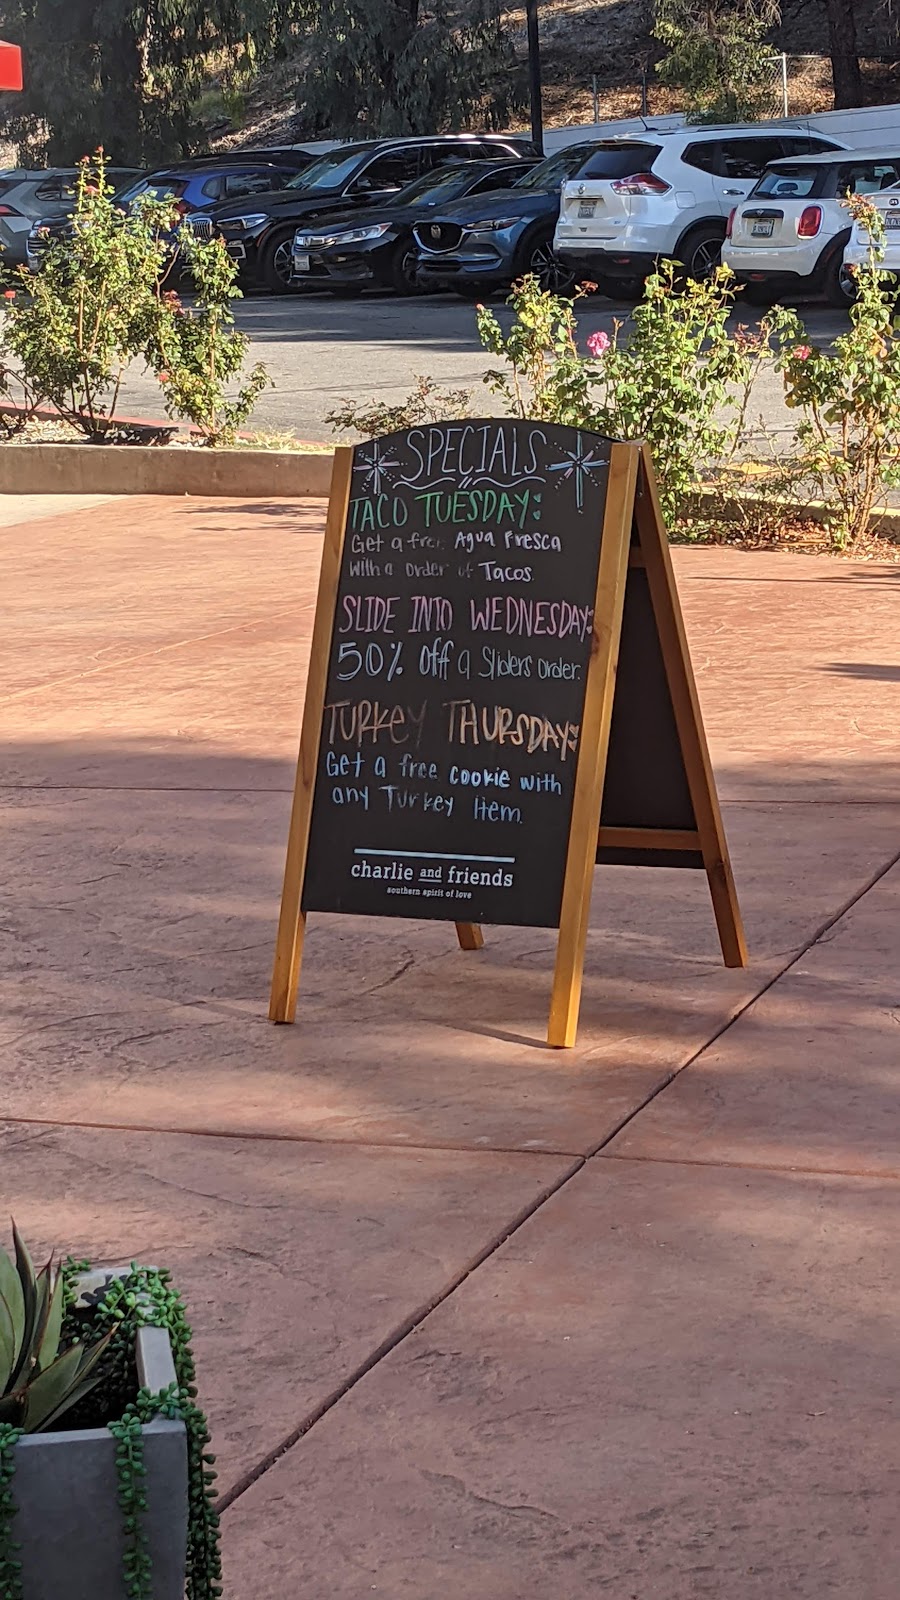 SPECIALS
TACO TUESDAY:
Get a free Agua Fresca
with a order of Tacos.
SLIDE INTO WEDNESDAY:
50% Off a Sliders order.
TURKEY THURSDAY:
Get a free cookie with
any Turkey Item.
charlie and friends
southern spirit of love